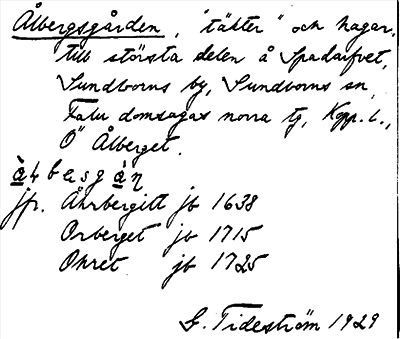 Ålbergsgården, "täkter" och hagar,
till största delen å Spadarfvet,
Sundborns by, Sundborns sn,
Falu domsagas norra tg, Kopp. l.,
Ö Ålberget.
jfr. Åhrbergitt jb 1638
Orberget jb 1715
Ohret jb 1725
G. Tideström 1929